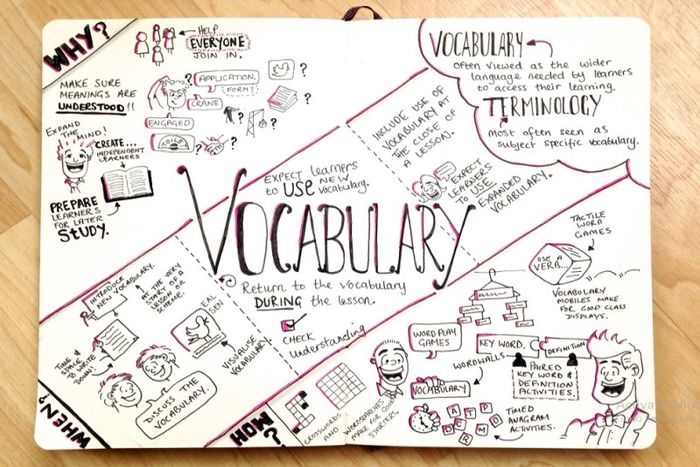 WHY?
HELP
EVERYONE
JOIN IN.
MAKE SURE
MEANINGS ARE
UNDERSTOOD!!
APPLICATION
FORM?
CRANE
ENGAGED
?
?
?
?
?
?
EXPAND
THE
MIND!
CREATE...
INDEPENDENT
LEARNERS
PREPARE
LEARNERS
FOR LATER
STUDY.
VOCABULARY
Often viewed as the wider
language needed by learners
to access their learning.
TERMINOLOGY
Most often seen as
subject specific vocabulary.
INCLUDE USE OF
VOCABULARY AT
THE CLOSE OF
A LESSON.
EXPECT
LEARNERS
TO USE
EXPANDED
VOCABULARY.
EXPECT learners
to USE NEW
vocabulary.
VOCABULARY
Return to the vocabulary
DURING the lesson.
CHECK
Understanding
INTRODUCE
NEW VOCABULARY.
AT THE VERY
START OF A
LESSON OR A
SCHEME.
TIME &
SPACE TO
WRITE
DOWN!
VISUALISE
VOCABULARY
DISCUSS THE
VOCABULARY.
WHEN?
HOW?
CROSSWORDS
AND
WORDSEARCHES
MAKE FOR GOOD
STARTERS.
TACTILE
WORD
GAMES
USE A
VERB...
VOCABULARY
MOBILES MAKE
FOR GOOD CLASS
DISPLAYS.
WORD PLAY
GAMES
KEY WORD.
DEFINITION
WORDWALLS
VOCABULARY
PAIRED
KEY WORD &
DEFINITION
ACTIVITIES.
TIMED
ANAGRAM
ACTIVITIES.